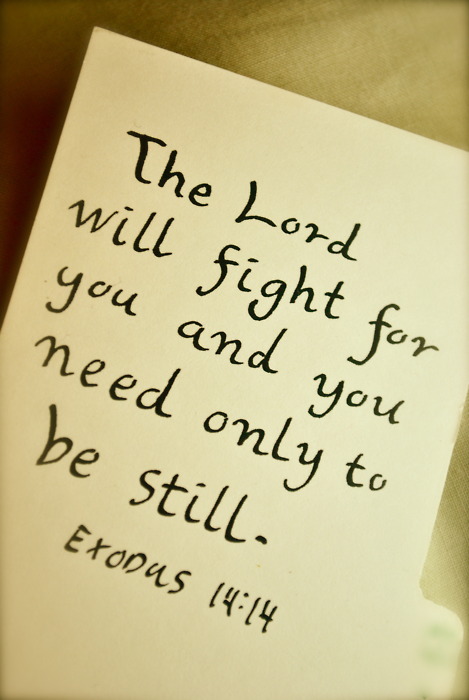 The Lord
will fight for
you and you
need only to
be still.
Exodus 14:14